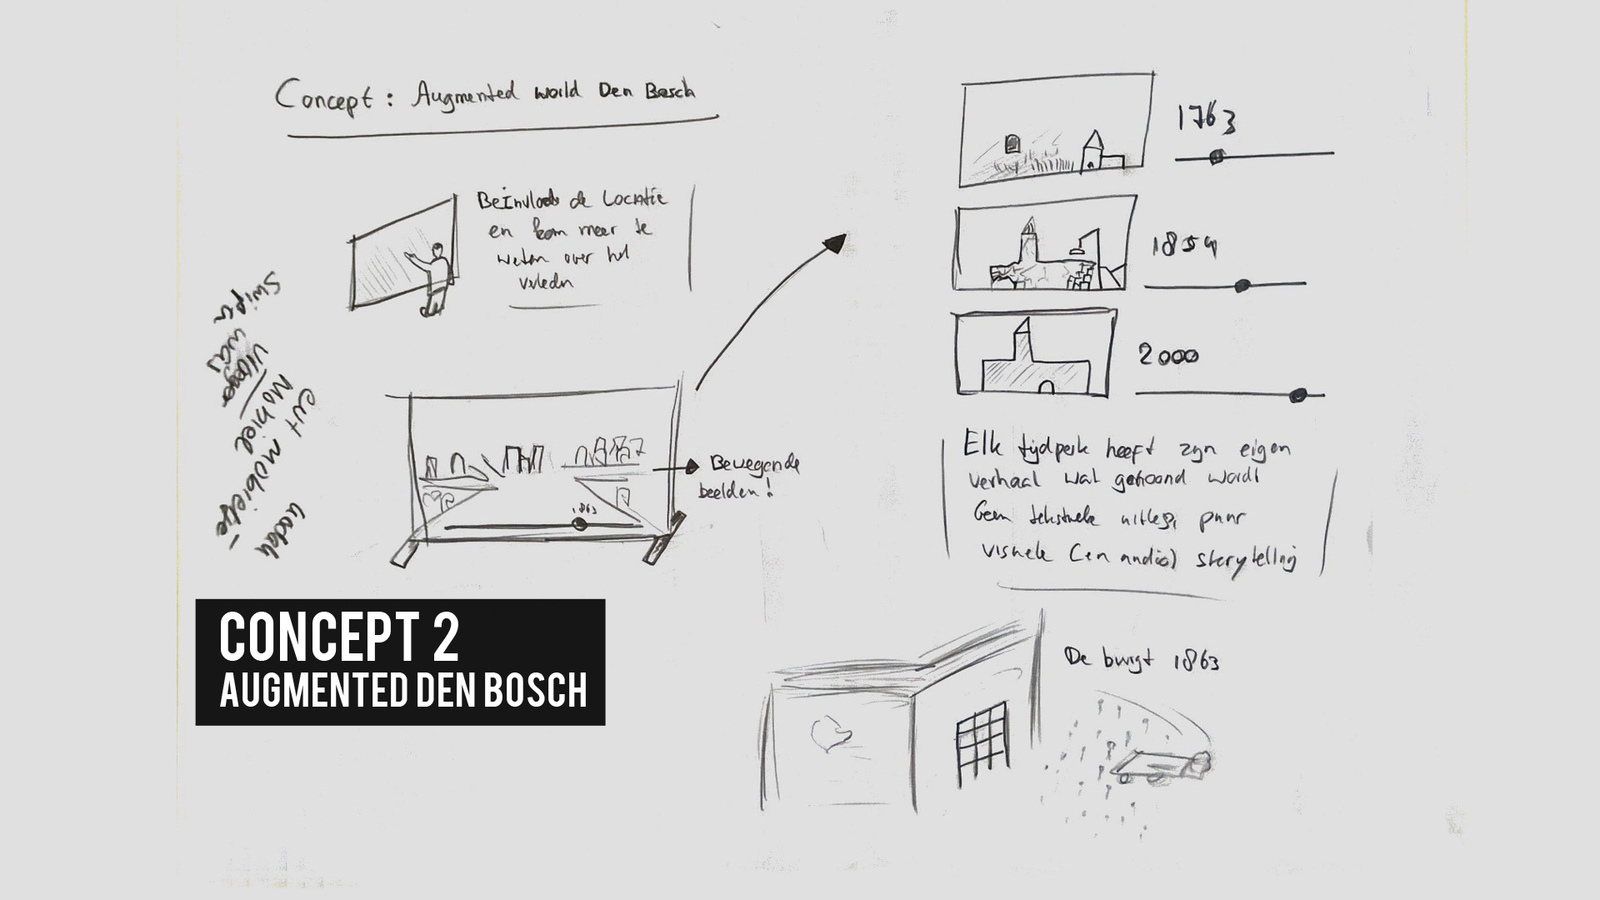 Concept: Augmented world Den Bosch
Beïnvloed de Locatie
en kom meer te
weten over het
verleden
Swipen was
vroeger
Mobiel
een mobieltje-
1863
Bewegende
beelden!
1763
1854
2000
Elk tijdperk heeft zijn eigen
verhaal wat getoond wordt
Geen tekstuele uitleg, puur
visuele (en audio) storytelling
De burgt 1863
CONCEPT 2
AUGMENTED DEN BOSCH